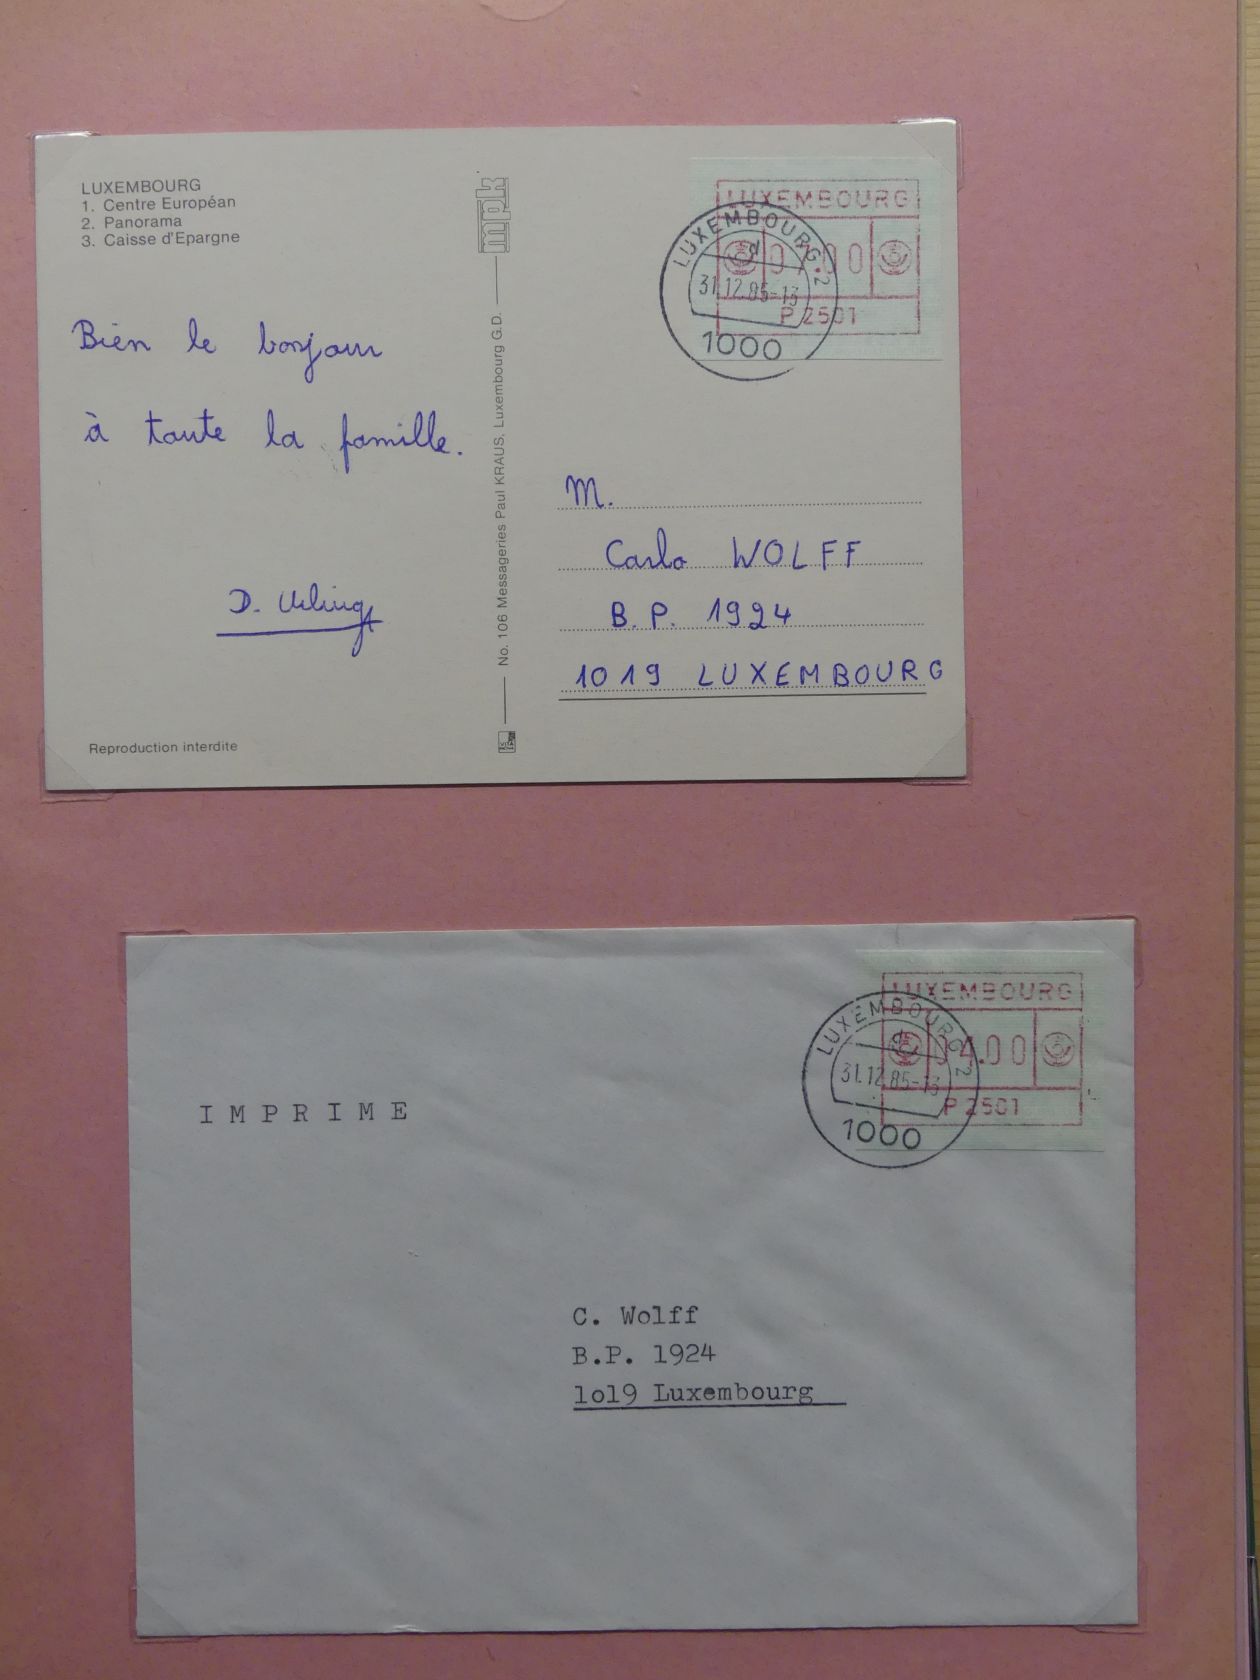 LUXEMBOURG
1. Centre Européan
2. Panorama
3. Caisse d'Epargne
Bien le bonjour
à toute la famille.
D.
Reproduction interdite
mpk
No. 106 Messageries Paul KRAUS, Luxembourg G.D.
LUXEMBOURG
P2501
LUXEMBOURG 2
d
31.12.85-13
1000
M.
Carlo WOLFF
B.P. 1924
1019 LUXEMBOURG
LUXEMBOURG
04.00
P2501
LUXEMBOURG 2
d
31.12.85-13
1000
IMPRIME
C. Wolff
B.P. 1924
1o19 Luxembourg